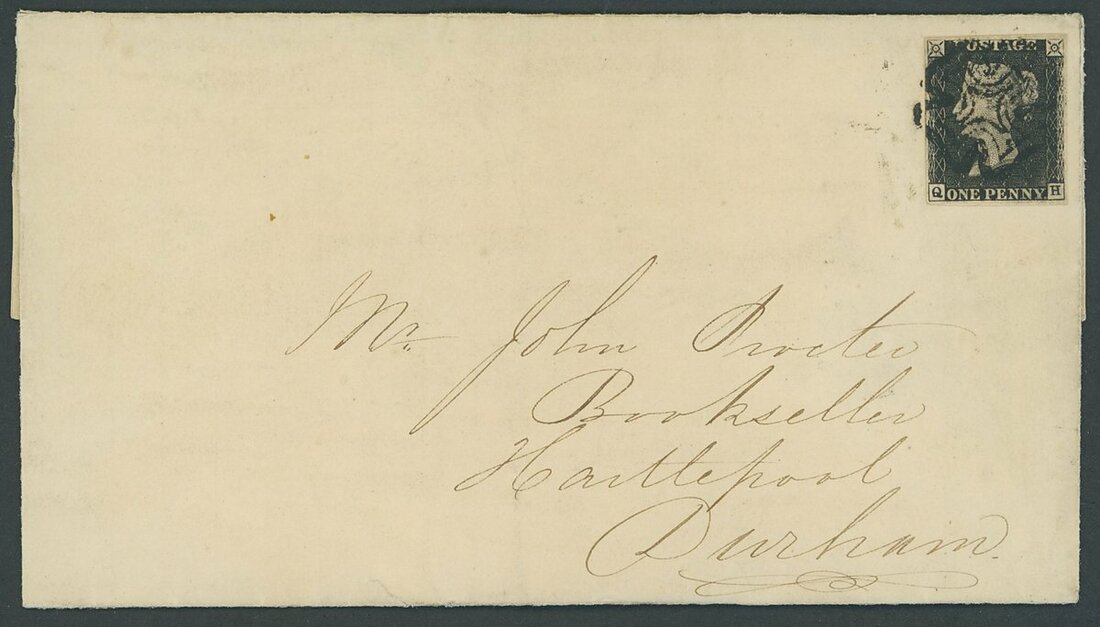 POSTAGE
Q ONE PENNY H
Mr. John Procter
Bookseller
Hartlepool
Durham.